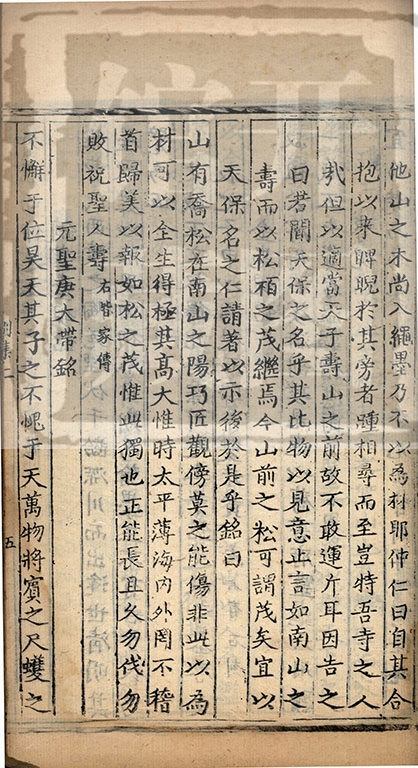 宜他山之木尚入繩墨乃不以為材耶仲仁曰自其合
抱以來睥睨於其旁者踵相尋而至豈特吾寺之人
㦲但以適當天子壽山之前故不敢運斤耳因告之
曰若聞天保之名乎其比物以見意止言如南山之
壽而以松柏之茂繼焉今山前之松可謂茂矣宜以
天保名之仁請著以示後於是乎銘曰
山有喬松在南山之陽巧匠觀傍莫之能傷非此以為
材可以全生得極其髙大惟時太平薄海內外罔不稽
首歸美以報如松之茂惟此獨也正能長且久勿伐勿
敗祝聖人壽右皆家傳
元聖庚大帶銘
不懈于位昊天其子之不愧于天萬物將賓之尺蠖之
五